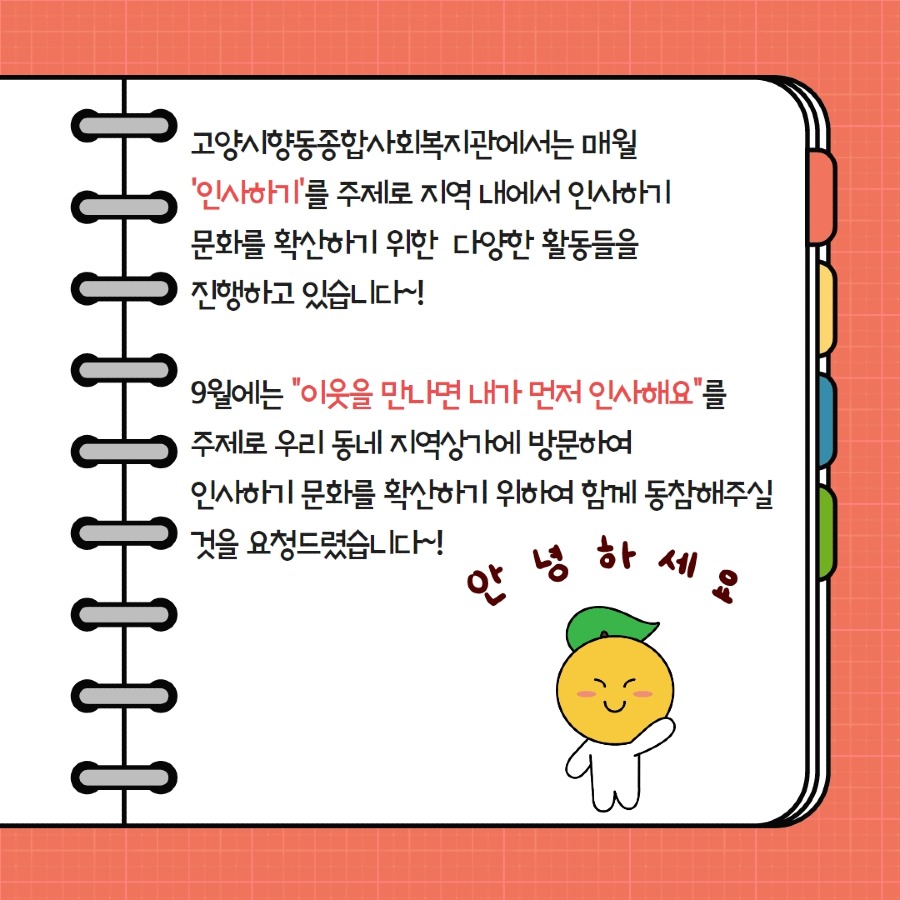 고양시향동종합사회복지관에서는 매월
'인사하기'를 주제로 지역 내에서 인사하기
문화를 확산하기 위한 다양한 활동들을
진행하고 있습니다~!
9월에는 "이웃을 만나면 내가 먼저 인사해요"를
주제로 우리 동네 지역상가에 방문하여
인사하기 문화를 확산하기 위하여 함께 동참해주실
것을 요청드렸습니다~!
안녕하세요